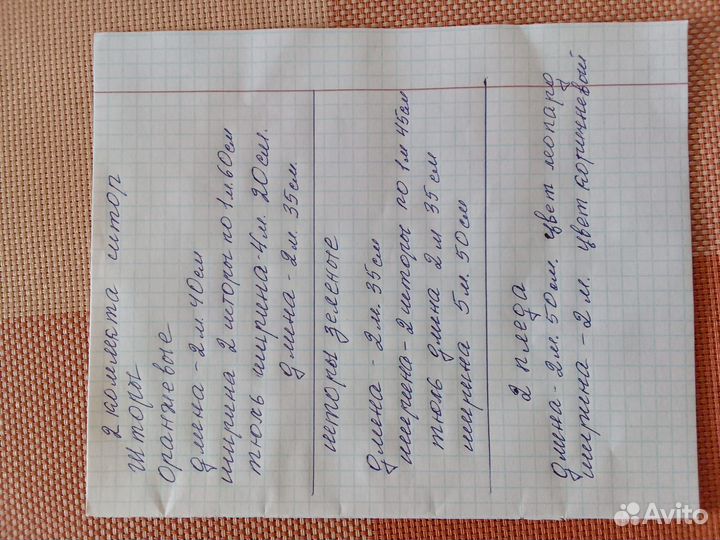 2 комлекта штор
Шторы
Оранжевые
Длина - 2 м. 40 см
ширина 2 шторы по 1 м. 60 см
тюль ширина - 4 м. 20 см.
длина - 2 м. 35 см.
шторы зеленые
Длина - 2 м. 35 см
ширина - 2 шторы по 1 м 45 см
тюль длина 2 м 35 см
ширина 5 м. 50 см
2 пледа
Длина - 2 м. 50 см. цвет леопард
ширина - 2 м. цвет коричневый
Avito